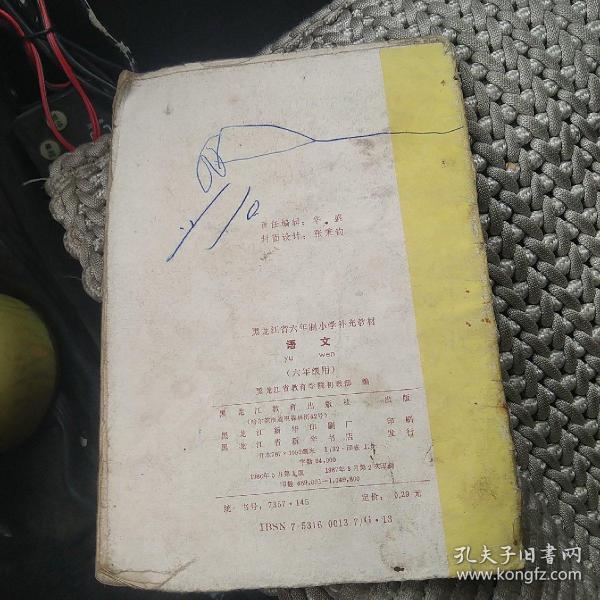 责任编辑：
封面设计：张秉钧
黑龙江省六年制小学补充教材
语文
yu wen
（六年级用）
黑龙江省教育学院初教部 编
黑龙江教育出版社 出版
黑龙江新华印刷厂 印刷
黑龙江省新华书店 发行
开本787×1092毫米 1/32·印张
字数 54,000
1986年5月第1版 1987年5月第2次印刷
印数
统一书号：7357·145 定价：0.29元
IBSN 7-5316-0013-7/G·13
孔夫子旧书网
www.kongfz.com